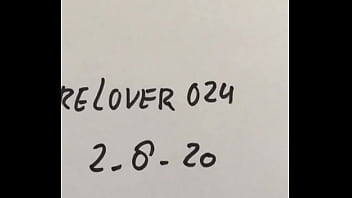 RELOVER 024
2-8-20